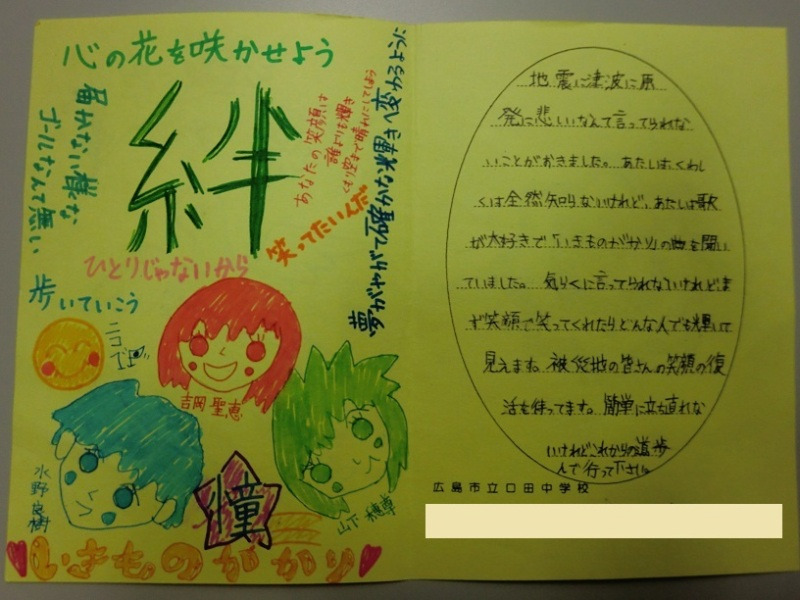 心の花を咲かせよう
絆
届かない様な
ゴールなんて無い
あなたの笑顔は
誰よりも輝き
くもり空まで晴れにしてしまう
夢がやがて確かな輝きへ変わるように
笑ってたいんだ
ひとりじゃないから
歩いていこう
吉岡聖恵
水野良樹
憧
山下穂尊
いきものがかり
地震に津波に原
発に悲しいなんて言ってられな
いことがおきました。あたしはくわし
くは全然知らないけれど、あたしは歌
が大好きで「いきものがかり」の曲を聞い
ていました。気らくに言ってられないけれどま
ず笑顔で笑ってくれたらどんな人でも輝いて
見えますね。被災地の皆さんの笑顔の復
活を待ってます。簡単に立ち直れな
いけれどこれからの道歩
んで行って下さい。
広島市立口田中学校